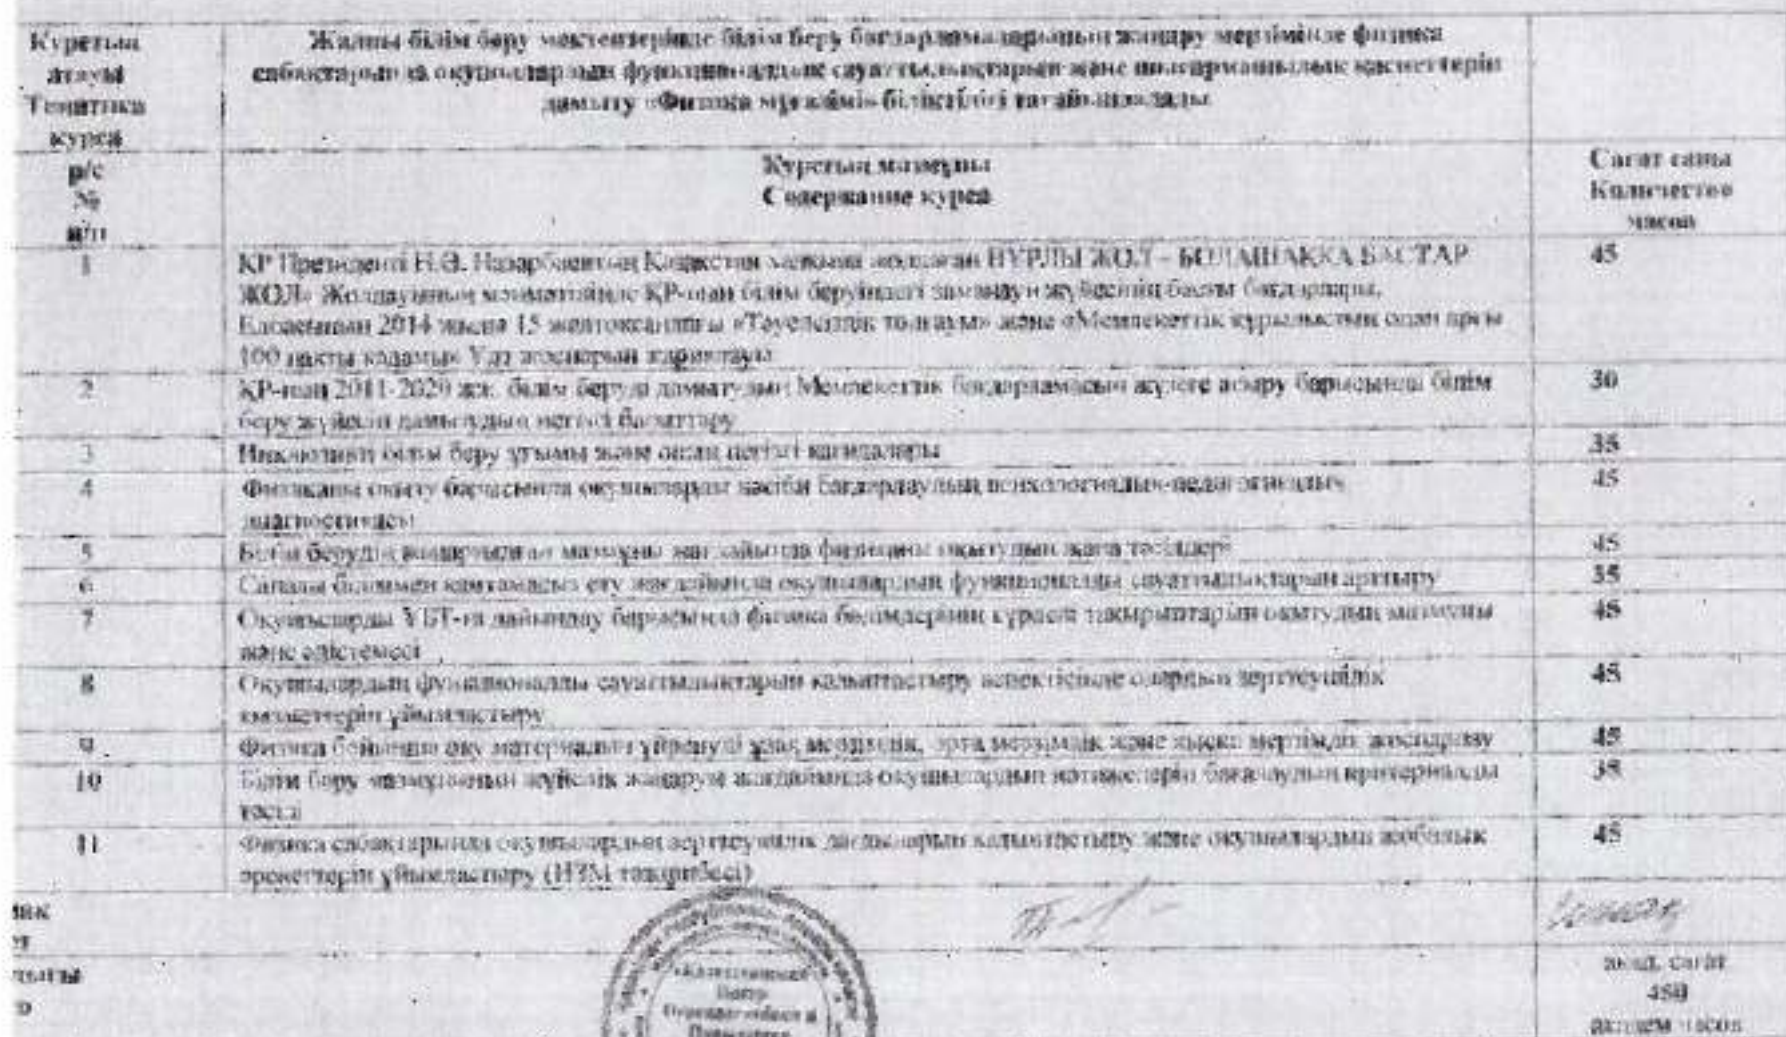 Курстың
атауы
Тематика
курса
Жалпы білім беру мектептерінде білім беру бағдарламаларының жаңару мерзімінде физика
сабақтарында оқушылардың функционалдық сауаттылықтарын және шығармашылық қасиеттерін
дамыту «Физика мұғалімі» біліктілігі тағайындалады
р/с
№
п/п
Курстың мазмұны
Содержание курса
Сағат саны
Количество
часов
1
ҚР Президенті Н.Ә. Назарбаевтың Қазақстан халқына жолдаған НҰРЛЫ ЖОЛ – БОЛАШАҚҚА БАСТАР
ЖОЛ» Жолдауының ҚР-ның білім беруіндегі жүйесінің басты бағдарлары,
Елбасының 2014 жылғы 15 желтоқсандағы «Тәуелсіздік толғауы» және «Мемлекеттік құрылыстың одан арғы
100 нақты қадамы» Ұлт жоспарын жариялауы
45
2
ҚР-ның 2011-2020 жж. білім беруді дамытудың Мемлекеттік бағдарламасын жүзеге асыру барысында білім
беру жүйесін дамытудың негізгі бағыттары
30
3
Инклюзивті білім беру ұғымы және оның негізгі қағидалары
35
4
Физиканы оқыту барысында оқушыларды кәсіби бағдарлаудың психологиялық-педагогикалық
диагностикасы
45
5
Білім берудің жаңартылған мазмұны жағдайында физиканы оқытудың жаңа тәсілдері
45
6
Сапалы біліммен қамтамасыз ету жағдайында оқушылардың функционалды сауаттылықтарын арттыру
35
7
Оқушыларды ҰБТ-ға дайындау барысында физика бөлімдерінің күрделі тақырыптарын оқытудың мазмұны
және әдістемесі
45
8
Оқушылардың функционалды сауаттылықтарын қалыптастыру аспектісінде олардың зерттеушілік
қызметтерін ұйымдастыру
45
9
Физика бойынша оқу материалын үйренуді ұзақ мерзімдік, орта мерзімдік және қысқа мерзімдік жоспарлау
45
10
Білім беру мазмұнының жүйелік жаңаруы жағдайында оқушылардың нәтижелерін бағалаудың критериалды
тәсілі
35
11
Физика сабақтарында оқушылардың зерттеушілік дағдыларын қалыптастыру және оқушылардың жобалық
әрекеттерін ұйымдастыру (НЗМ тәжірибесі)
45
акад. сағат
450
академ часов
Центр